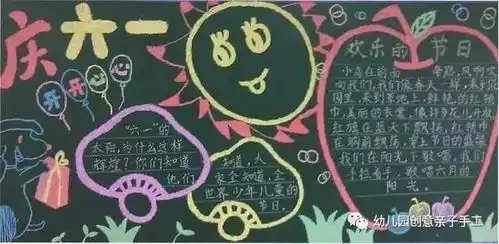 庆六一
开开心心
"六一"的
太阳,为什么这样
辉煌?你们知道
他们
知道,大
家全知道,全
世界少年儿童的
节日。
欢乐的节日
小鸟在前面带路,风啊吹
向我们,我们像春天一样,来到花
园里,来到草地上。鲜艳的红领
巾,美丽的衣裳,像许多花儿开放。
红旗在蓝天下飘扬,红领巾
在胸前飘荡,穿上节日的盛装,
我们在阳光下歌唱,我们
手拉着手,歌唱六月的
阳光。
幼儿园创意亲子手工